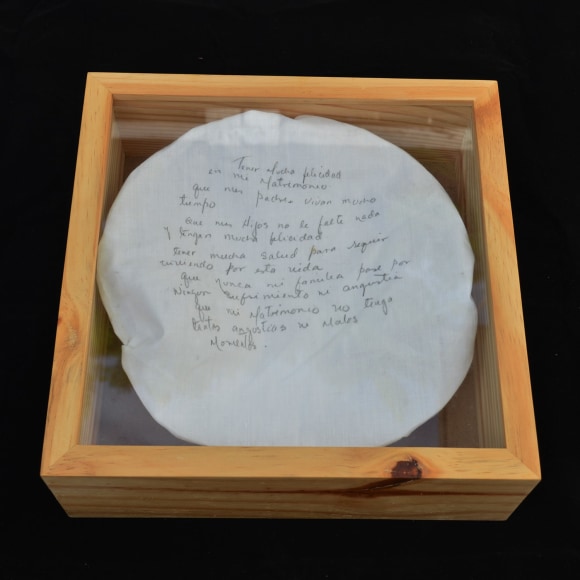 Tener Mucha felicidad
en mi Matrimonio
que mis Padres vivan mucho
tiempo
Que mis Hijos no le falte nada
y tengan mucha felicidad
tener mucha salud para seguir
por esta vida
que Nunca mi familia pase por
Ningun sufrimiento ni angustia
que mi Matrimonio no tenga
angustias ni Malos
Momentos.